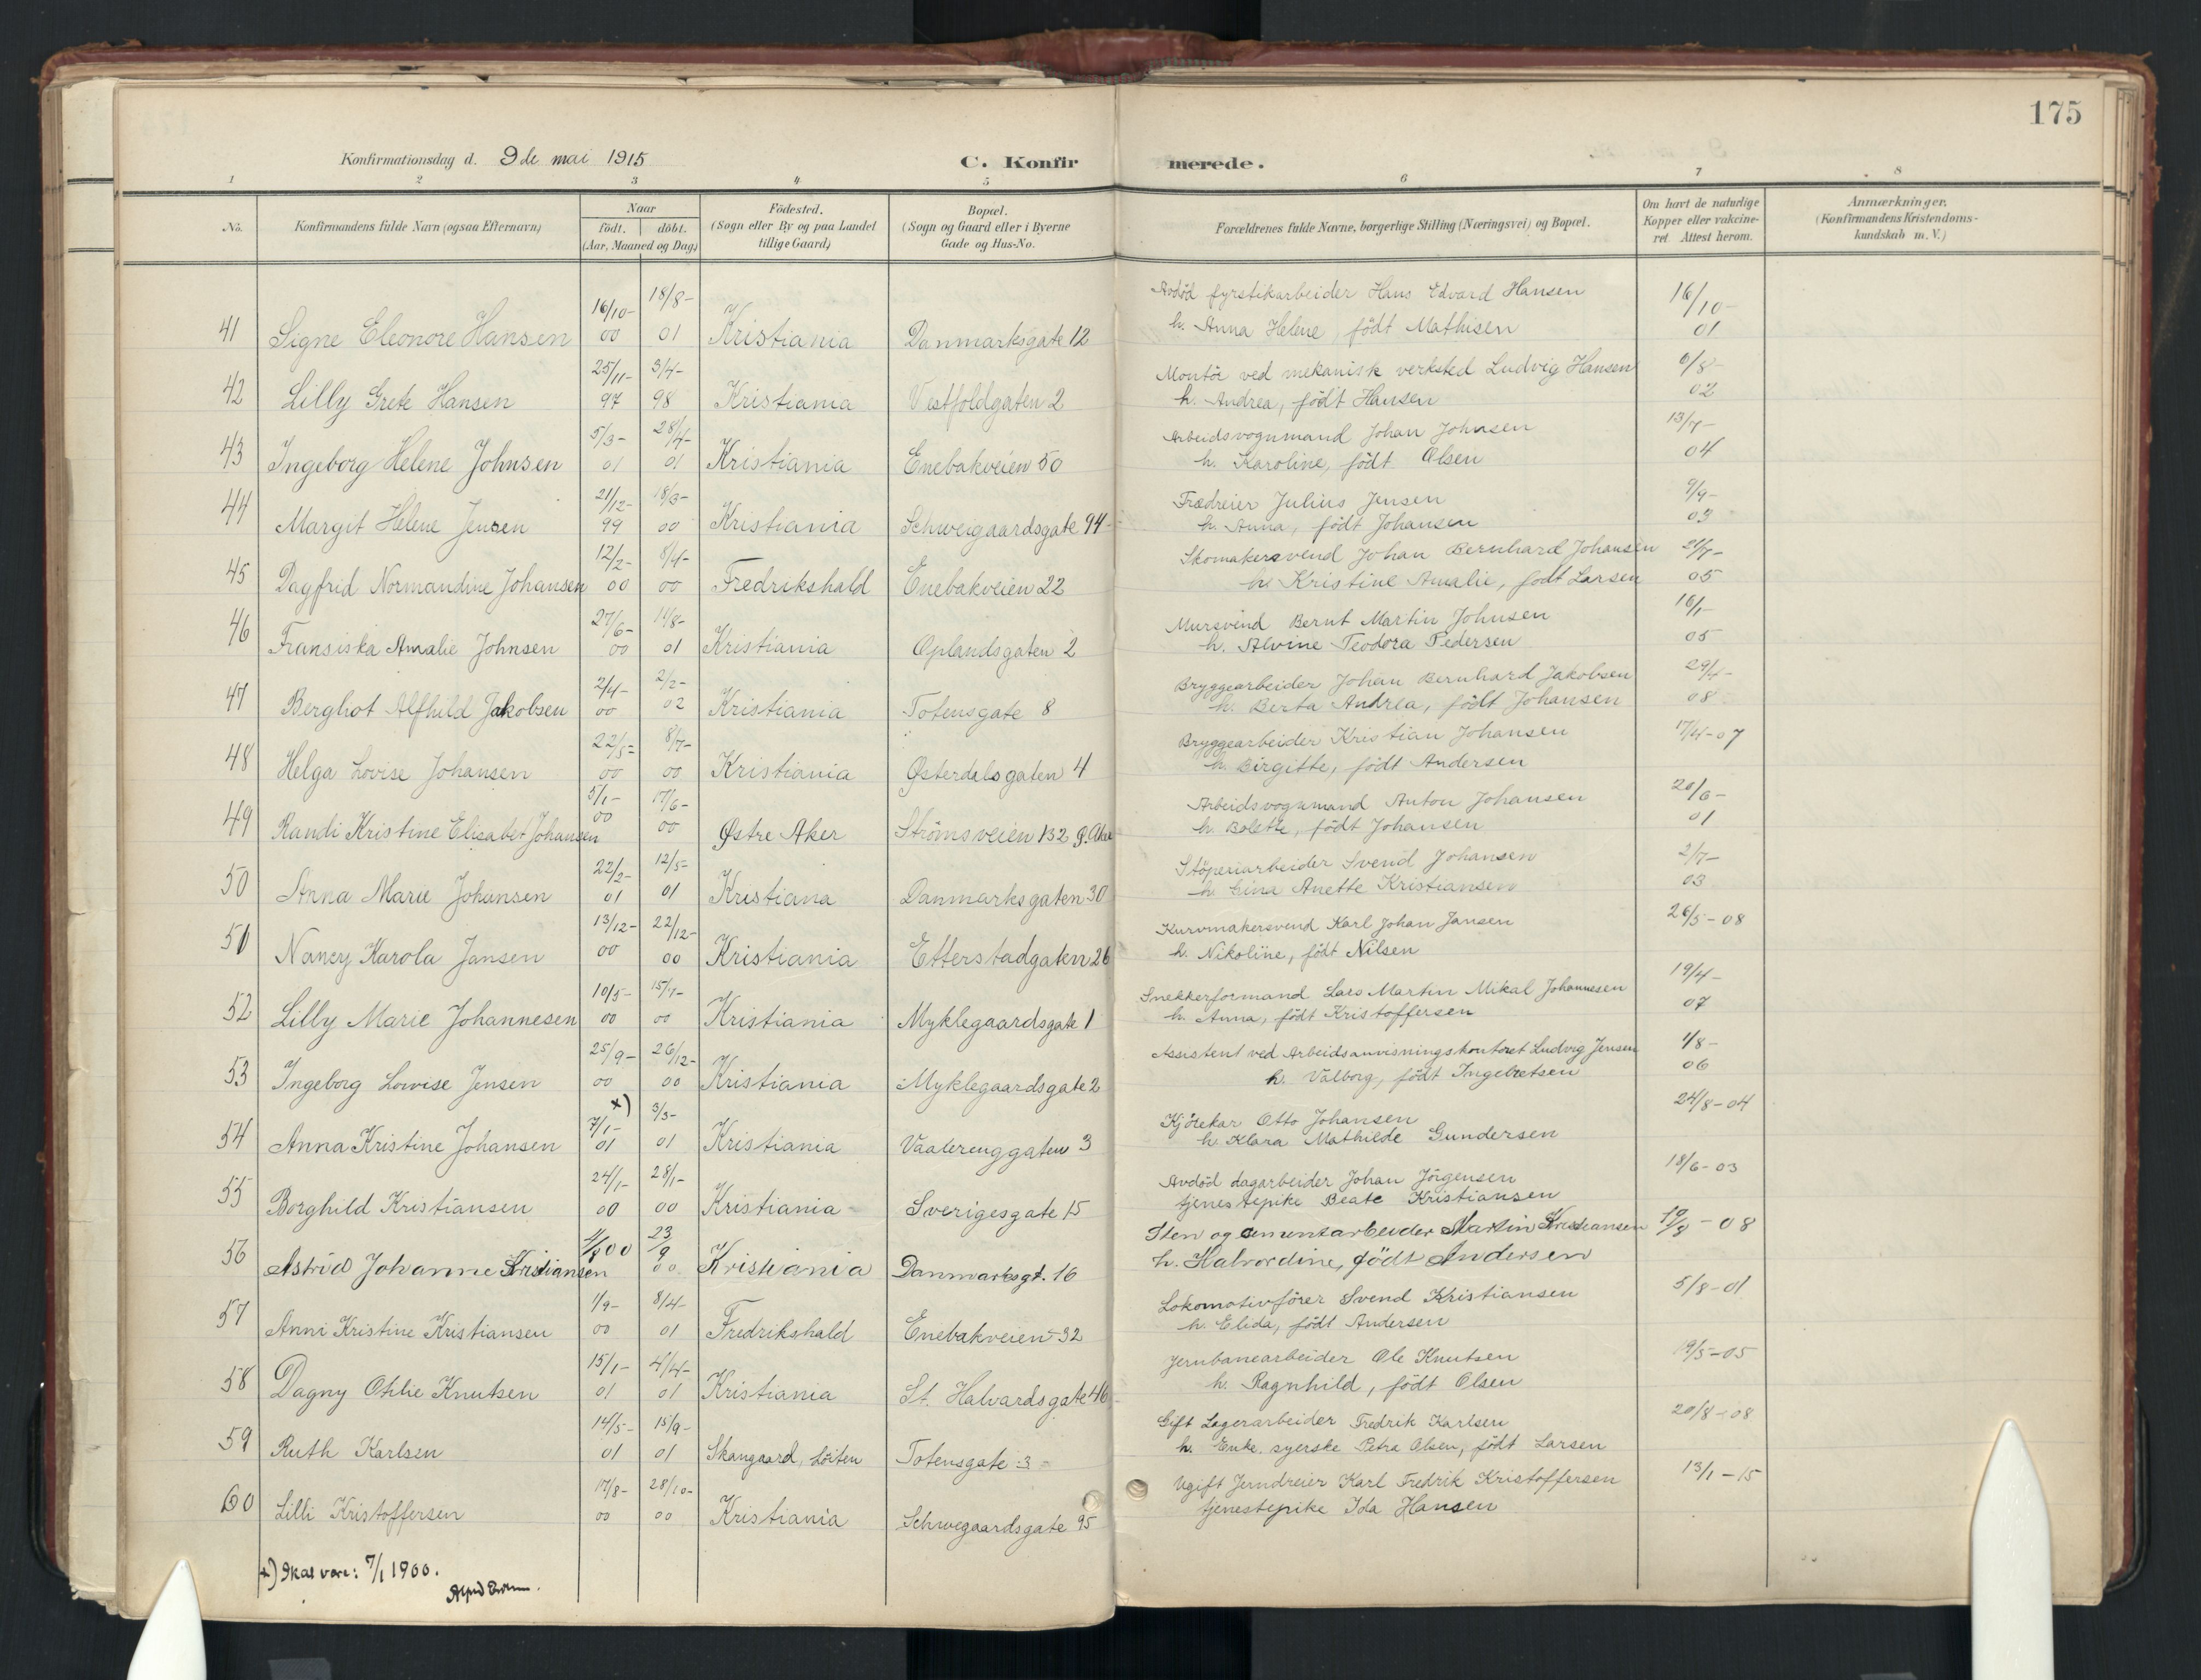 175
Konfirmationsdag d. 9de mai 1915 C. Konfirmerede.
1 2 3 4 5 6 7 8
No. Konfirmandens fulde Navn (ogsaa Efternavn) Naar födt. döbt. (Aar, Maaned og Dag) Födested. (Sogn eller By og paa Landet tillige Gaard) Bopæl. (Sogn og Gaard eller i Byerne Gade og Hus-No.) Forældrenes fulde Navne, borgerlige Stilling (Næringsvei) og Bopæl. Om havt de naturlige Kopper eller vakcineret. Attest herom. Anmærkninger. (Konfirmandens Kristendomskundskab m. V.)
41 Signe Eleonore Hansen 16/10-00 18/8-01 Kristiania Danmarksgate 12 Avdöd fyrstikarbeider Hans Edvard Hansen 16/10-01
h. Anna Helene, födt Mathisen
42 Lilly Grete Hansen 25/11-97 3/4-98 Kristiania Vestfoldgaten 2 Montör ved mekanisk verksted Ludvig Hansen 6/8-02
h. Andrea, födt Hansen
43 Ingeborg Helene Johnsen 5/3-01 28/4-01 Kristiania Enebakveien 50 Arbeidsvognmand Johan Johnsen 13/7-04
h. Karoline, födt Olsen
44 Margit Helene Jensen 21/12-99 18/3-00 Kristiania Schweigaardsgate 94 Trædreier Julius Jensen 9/9-03
h. Anna, födt Johansen
45 Dagfrid Normandine Johansen 12/2-00 8/4-00 Fredrikshald Enebakveien 22 Skomakersvend Johan Bernhard Johansen 21/7-05
h. Kristine Amalie, födt Larsen
46 Fransiska Amalie Johnsen 27/6-00 14/8-01 Kristiania Oplandsgaten 2 Mursvend Bernt Martin Johnsen 16/1-05
h. Alvine Teodora Pedersen
47 Berghot Alfhild Jakobsen 2/4-00 2/2-02 Kristiania Totensgate 8 Bryggearbeider Johan Bernhard Jakobsen 29/4-08
h. Berta Andrea, födt Johansen
48 Helga Lovise Johansen 22/5-00 8/7-00 Kristiania Østerdalsgaten 4 Bryggearbeider Kristian Johansen 17/4-07
h. Birgitte, födt Andersen
49 Randi Kristine Elisabet Johansen 5/1-00 17/6-00 Østre Aker Strömsveien 132 Ø. Aker Arbeidsvognmand Anton Johansen 20/6-01
h. Bolette, födt Johansen
50 Anna Marie Johansen 22/2-01 12/5-01 Kristiana Danmarksgaten 30 Stöperiarbeider Svend Johansen 2/7-03
h. Gina Anette Kristiansen
51 Nancy Karola Jansen 13/12-00 22/12-00 Kristiania Etterstadgaten 26 Kurvmakersvend Karl Johan Jansen 26/5-08
h. Nikoline, födt Nilsen
52 Lilly Marie Johannesen 10/5-00 15/7-00 Kristiania Myklegaardsgate 1 Snekkerformand Lars Martin Mikal Johannesen 19/4-07
h. Anna, födt Kristoffersen
53 Ingeborg Lovise Jensen 25/9-00 26/12-00 Kristiania Myklegaardsgate 2 Assistent ved Arbeidsanvisningskontoret Ludvig Jensen 1/8-06
h. Valborg, födt Ingebretsen
54 Anna Kristine Johansen x) 7/1-01 3/3-01 Kristiania Vaalerenggaten 3 Kjörekar Otto Johansen 24/8-04
h. Klara Mathilde Gundersen
55 Borghild Kristiansen 24/1-00 28/1-00 Kristiania Sverigesgate 15 Avdöd dagarbeider Johan Jörgensen 18/6-03
tjenestepike Beate Kristiansen
56 Astrid Johanne Kristiansen 4/8 00 23/9 00 Kristiania Danmarksgt. 16 Sten og cementarbeider Martin Kristiansen 19/8-08
h. Halvordine, födt Andersen
57 Anni Kristine Kristiansen 1/9-00 8/4-01 Fredrikshald Enebakveien 32 Lokomotivförer Svend Kristiansen 5/8-01
h. Elida, födt Andersen
58 Dagny Otilie Knutsen 15/1-01 4/4-01 Kristiania St. Halvardsgate 46 Jernbanearbeider Ole Knutsen 19/5-05
h. Ragnhild, födt Olsen
59 Ruth Karlsen 14/5-01 15/9-01 Skangaard, Löiten Totensgate 3 Gift Lagerarbeider Fredrik Karlsen 20/8-08
h. Enke, syerske Petra Olsen, födt Larsen
60 Lilli Kristoffersen 17/8-00 28/10-00 Kristiania Schwegaardsgate 95 Ugift Jerndreier Karl Fredrik Kristoffersen 13/1-15
tjenestepike Ida Hansen
x) Skal være: 7/1 1900.